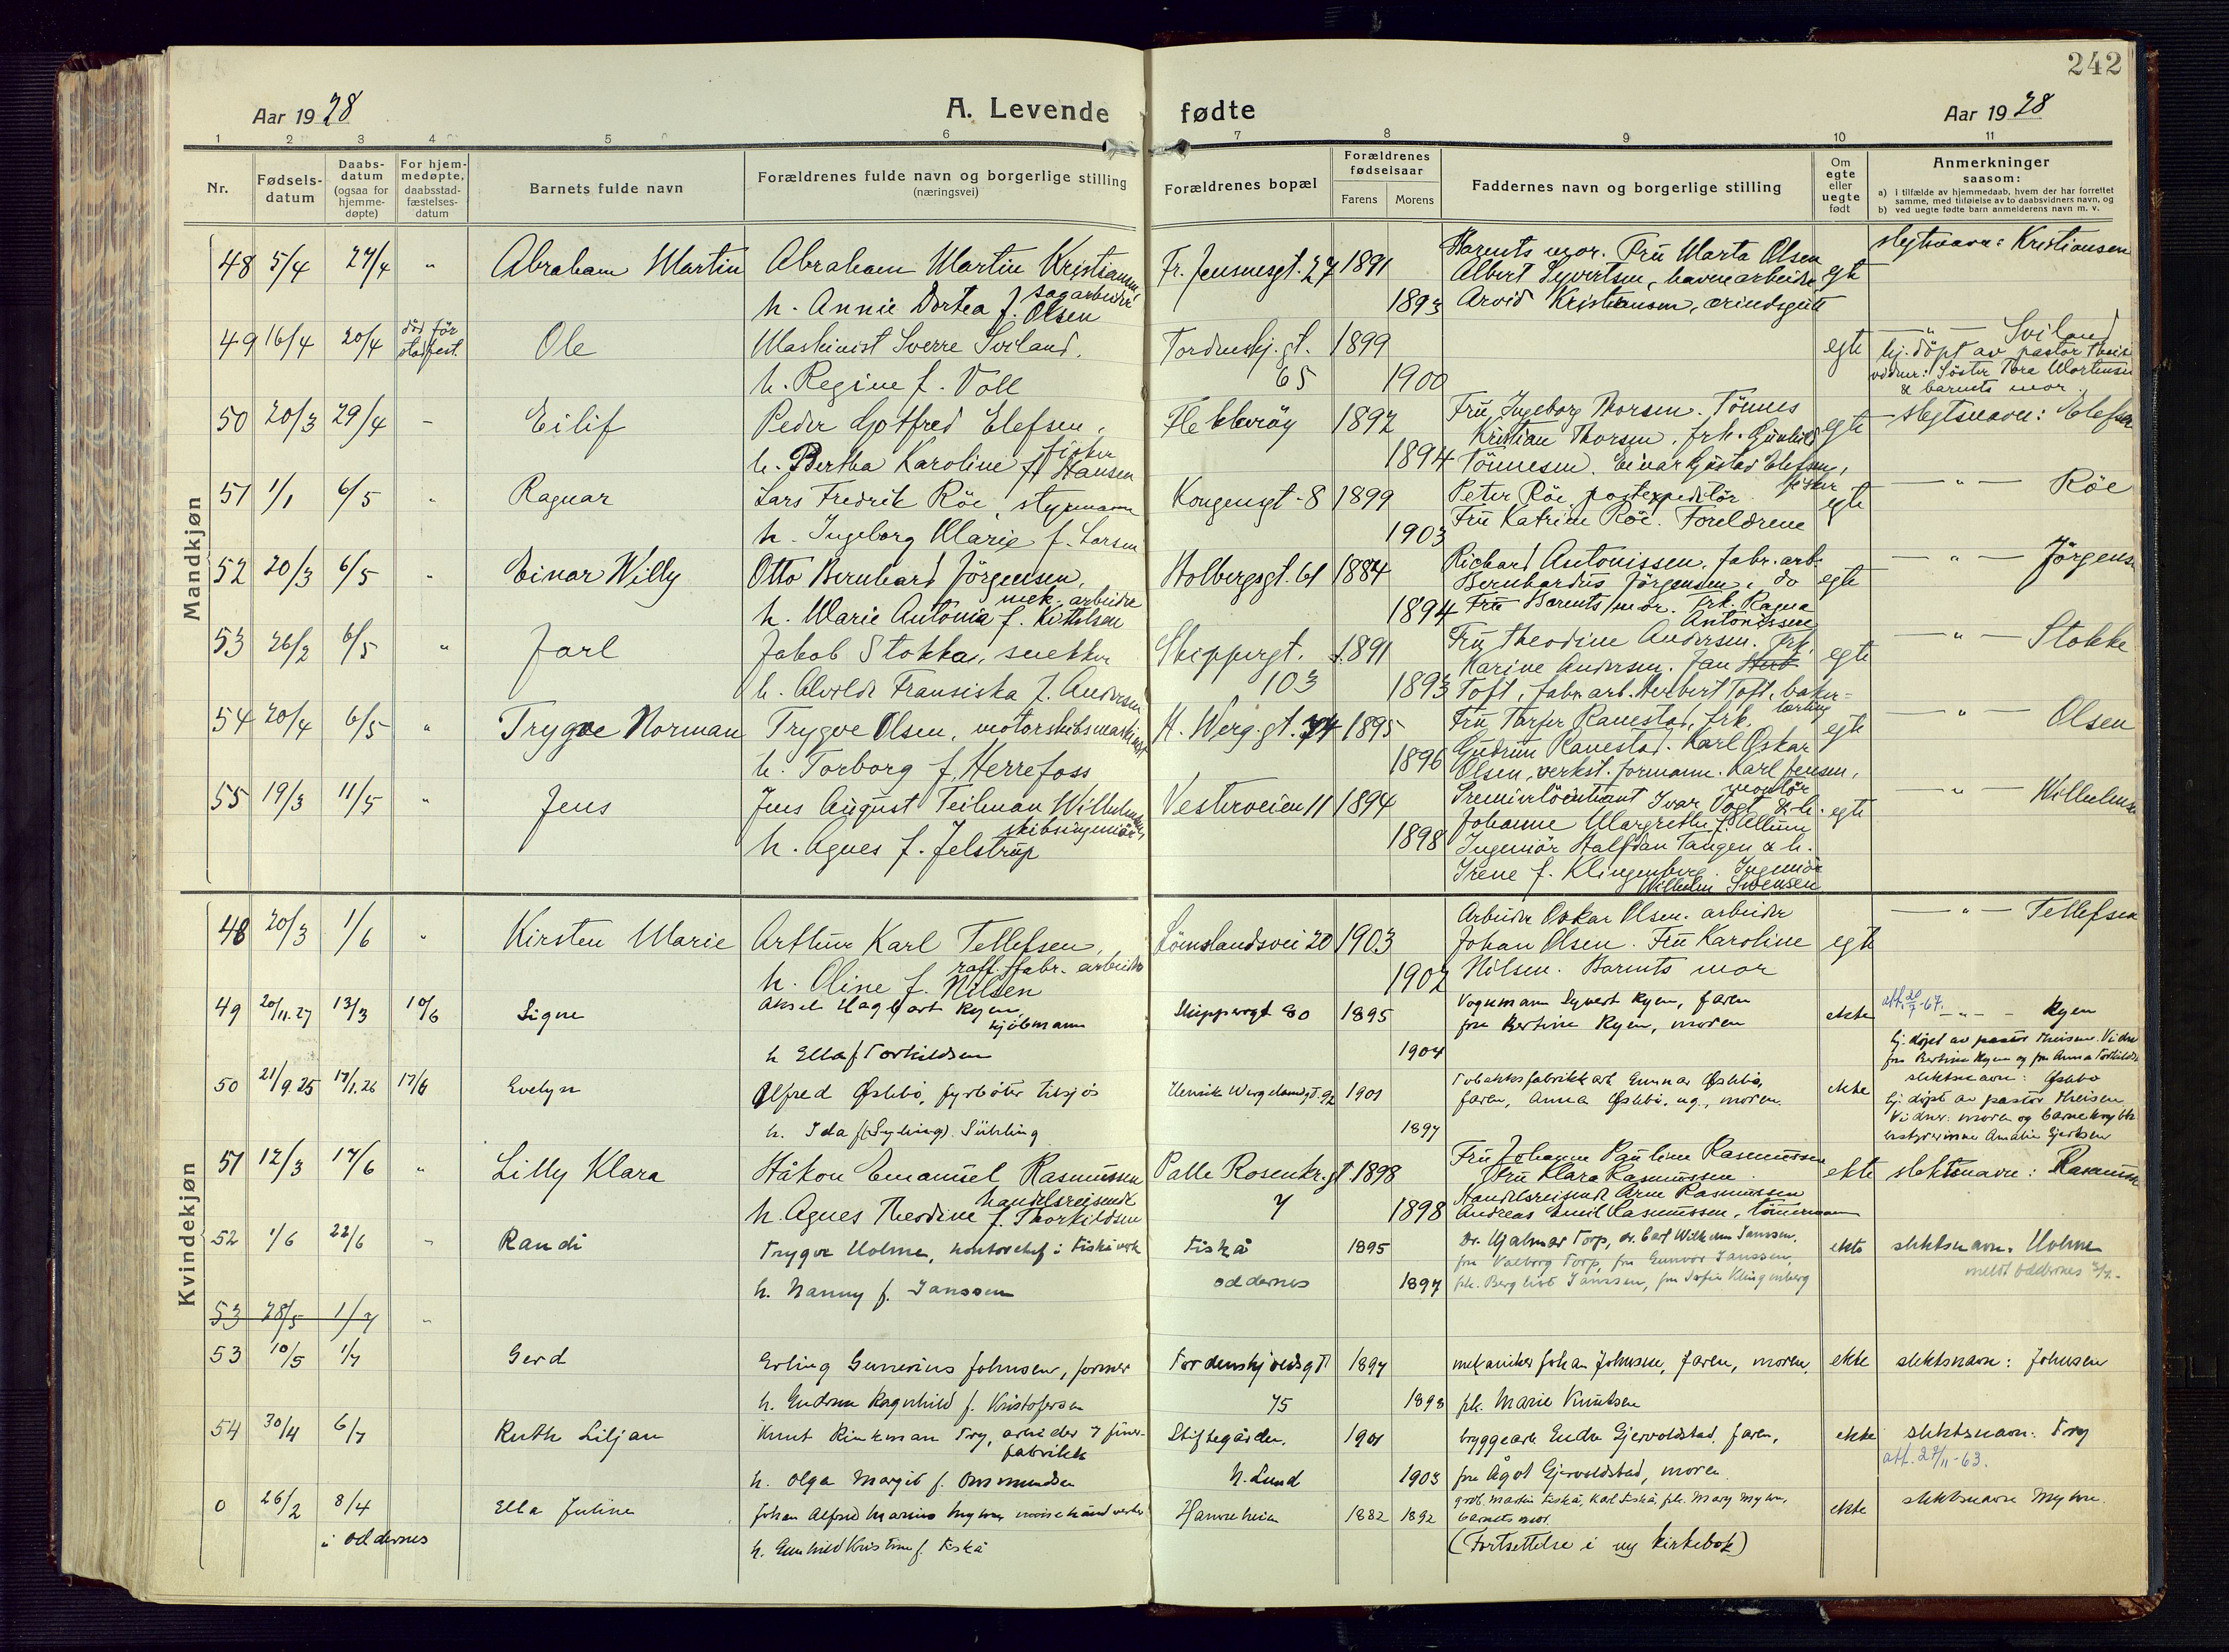 242
Aar 1928
A. Levende fødte
Aar 1928
1 2 3 4 5 6 7 8 9 10 11
Nr.
Fødsels-
datum
Daabs-
datum
(ogsaa for
hjemme-
døpte)
For hjem-
medøpte,
daabsstad-
fæstelses-
datum
Barnets fulde navn
Forældrenes fulde navn og borgerlige stilling
(næringsvei)
Forældrenes bopæl
Forældrenes
fødselsaar
Farens Morens
Faddernes navn og borgerlige stilling
Om
egte
eller
uegte
født
Anmerkninger
saasom:
a) i tilfælde av hjemmedaab, hvem der har forrettet
samme, med tilføielse av to daabsvidners navn, og
b) ved uegte fødte barn anmelderens navn m. v.
Mandkjøn
48 5/4 27/4 " Abraham Martin Abraham Martin Kristiansen, Fr. Jensensgt. 27 1891 Barnets mor. Fru Marta Olsen egte slegtsnavn: Kristiansen
sagarbeider Albert Syvertsen, havnearbeider
h. Annie Dortea f. Olsen 1893 Arvid Kristiansen, ærindsgutt
49 16/4 20/4 död för stadfest. Ole Maskinist Sverre Sviland. Tordenskj. gt. 1899 egte — " — Sviland
65 hj. döpt av pastor Theis
h. Regine f. Voll 1900 vidner: Söster Tora Mortensen
& barnets mor.
50 20/3 29/4 - Eilif Peder Gotfred Elefsen, Flekkeröy 1892 Fru Ingeborg Thorsen. Tönnes egte slegtsnavn: Elefsen
fisker Kristian Thorsen, frk. Gunhild
h. Bertha Karoline f. Hansen 1894 Tönnesen. Einar Gustav Elefsen,
fisker
51 1/1 6/5 " Ragnar Lars Fredrik Röe, styrmann Kongensgt. 8 1899 Peter Röe, postexpeditör egte — " — Röe
h. Ingeborg Marie f. Larsen 1903 Fru Katrine Röe. Foreldrene
52 20/3 6/5 " Einar Willy Otto Bernhard Jörgensen, Holbergsgt. 61 1884 Richard Antonissen, fabr. arb. egte — " — Jörgensen
mek. arbeider Bernhardus Jörgensen, do
h. Marie Antonia f. Kittelsen 1894 Fru Barnets mor. Frk. Ragna
Antonissen
53 26/2 6/5 " Jarl Jakob Stokka, snekker Skippergt. 1891 Fru Theodine Andersen. Frk. egte — " — Stokke
103 Karine Andersen. Jan
h. Alvilde Fransiska f. Andersen 1893 Toft, fabr. arb. Herbert Toft, baker-
lærling
54 20/4 6/5 " Trygve Norman Trygve Olsen, motorskibsmaskinist H. Werg. gt. 74 1895 Fru Torfer Ranestad, frk. egte — " — Olsen
Gudrun Ranestad. Karl Oskar
h. Torborg f. Herrefoss 1896 Olsen, verkst. formann. Karl Jensen,
montör
55 19/3 11/5 " Jens Jens August Teilman Wilhelmsen, Vesterveien 11 1894 Premierlöitnant Ivar Vogt & h. egte — " — Wilhelmsen
skibsingeniör Johanne Margrethe f. Allum
h. Agnes f. Jelstrup 1898 Ingeniör Halfdan Tangen & h.
Irene f. Klingenberg. Ingeniör
Wilhelm Svensen
Kvindekjøn
48 20/3 1/6 " Kirsten Marie Arthur Karl Tellefsen, Lömslandsvei 20 1903 Arbeider Oskar Olsen. arbeider egte — " — Tellefsen
raff. fabr. arbeider Johan Olsen. Fru Karoline
h. Oline f. Nilsen 1902 Nilsen. Barnets mor
49 20/11.27 13/3 10/6 Signe Aksel Hagbart Ryen, Skippergt 80 1895 Vognmann Syvert Ryen, faren ekte att. 20/7-67. — " — Ryen
kjöbmann fru Bertine Ryen, moren hj. döpt av pastor Theisen. Vidner
h Ella f Torkildsen 1904 fru Bertine Ryen og fru Anna Torkildsen
50 21/9.25 17/1.26 17/6 Evelyn Alfred Øslebö, fyrböter tilsjös Henrik Wergelandsgt. 92 1901 Tobakksfabrikkarb Gunnar Øslebö, ekte slektsnavn: Øslebø
faren, Anna Øslebö, ug., moren. hj. döpt av pastor Theisen
h. Ida f. (Syling) Sühling 1897 Vidner: moren og barnekrybbe
bestyrerinne Amalie Gjertsen
51 12/3 17/6 " Lilly Klara Håkon Emanuel Rasmussen Palle Rosenkr. gt 1898 Fru Johanne Pauline Rasmussen ekte slektsnavn: Rasmussen
handelsreisende 7 Fru Klara Rasmussen
h. Agnes Theodine f. Thorkildsen 1898 Handelsreisende Arne Rasmussen
Andreas Emil Rasmussen, tömmermann
52 1/6 22/6 - Randi Trygve Holme, kontorchef i Fiskå verk Fiskå 1895 Dr. Hjalmar Torp, dr. Carl Wilhelm Janssen, ekte slektsnavn: Holme
Oddernes fru Valborg Torp, fru Gunvor Janssen, meldt Oddernes
h. Nanny f. Janssen 1897 frk. Bergliot Janssen, fru Sofie Klingenberg
53 28/5 1/7 "
53 10/5 1/7 Gerd Erling Gunerius Johnsen, former Tordenskjoldsgt 1897 mekaniker Johan Johnsen, faren, moren, ekte slektsnavn: Johnsen
h. Gudrun Ragnhild f. Kristofersen 75 1898 frk. Marie Knutsen
54 30/4 6/7 Ruth Liljan Knut Rinkman Try, arbeider i finer- Stiftegården, 1901 bryggearb Endre Gjervoldstad, faren, ekte slektsnavn: Try
fabrikk att. 27/11-63.
h. Olga Margit f. Ommundsen N. Lund 1903 fru Ågot Gjervoldstad, moren.
0 26/2 8/4 Ella Juline Johan Alfred Marius Myhre, Hamreheien 1882 1892 grob. Martin Fiskå, Karl Fiskå, frk. Mary Myhre, ekte slektsnavn Myhre.
i Oddernes barnets mor.
h. Gunhild Kristine f. Fiskå (Fortsettelse i ny kirkebok)